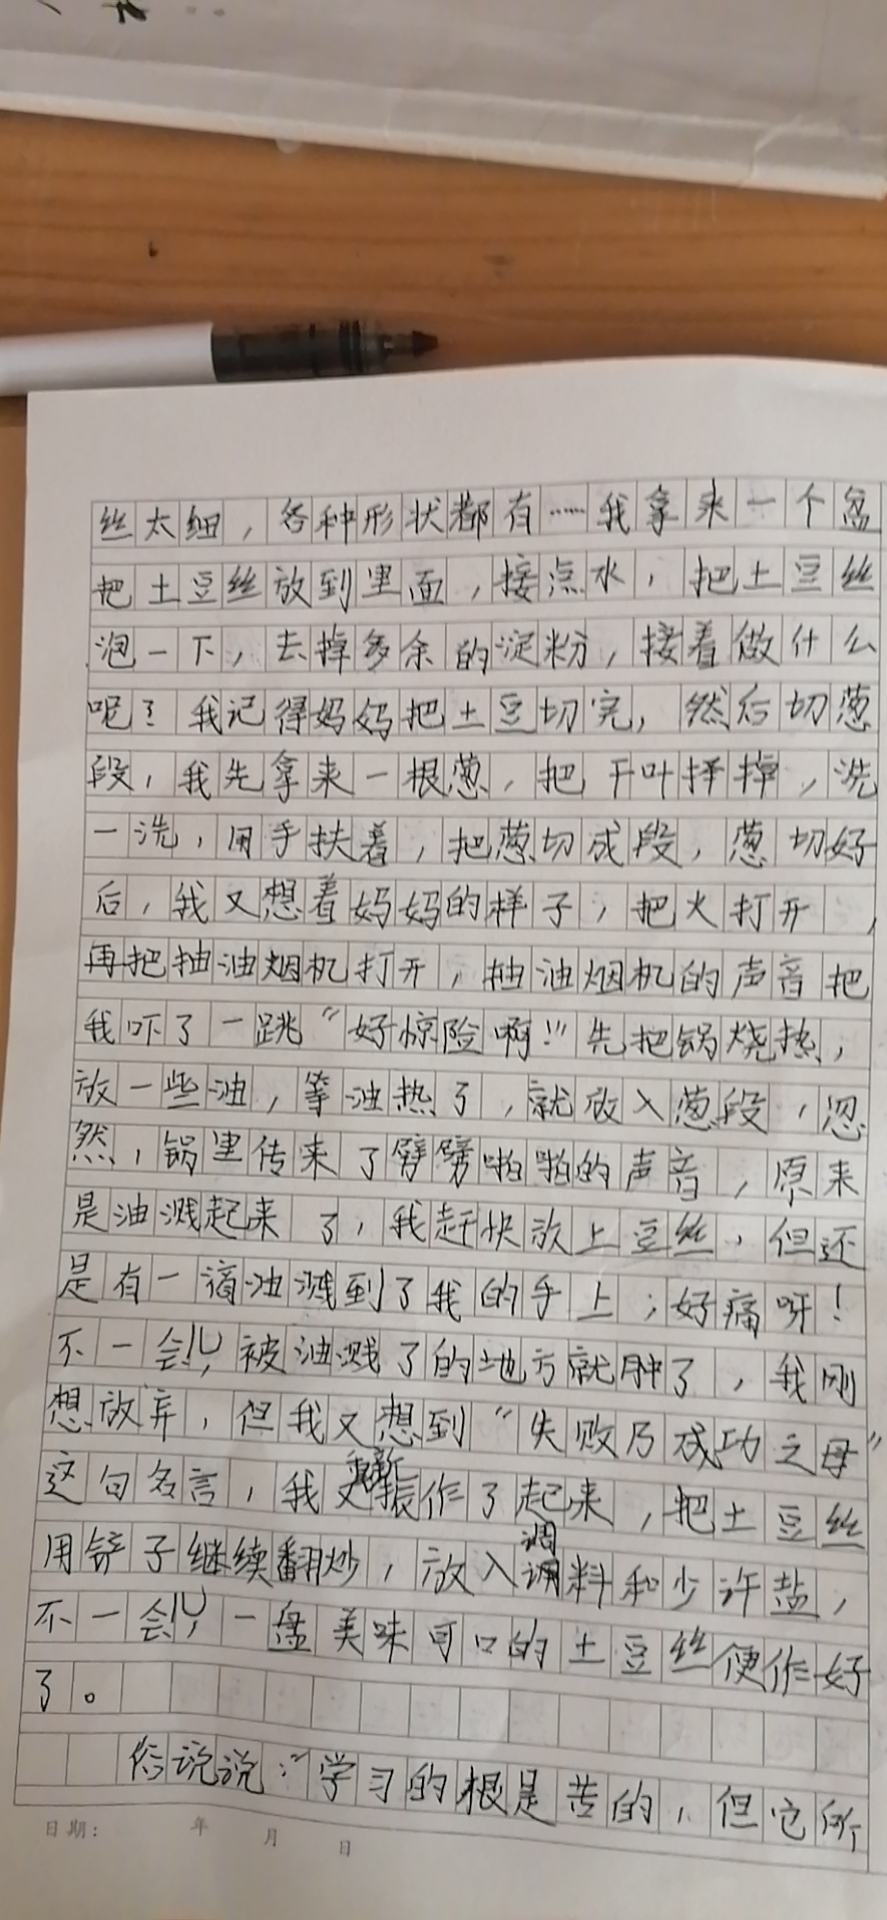 丝太细，各种形状都有……我拿来一个盆
把土豆丝放到里面，接点水，把土豆丝
泡一下，去掉多余的淀粉，接着做什么
呢？我记得妈妈把土豆切完，然后切葱
段，我先拿来一根葱，把干叶择掉，洗
一洗，用手扶着，把葱切成段，葱切好
后，我又想着妈妈的样子，把火打开，
再把抽油烟机打开，抽油烟机的声音把
我吓了一跳“好惊险啊！”先把锅烧热，
放一些油，等油热了，就放入葱段，忽
然，锅里传来了劈劈啪啪的声音，原来
是油溅起来了，我赶快放上豆丝，但还
是有一滴油溅到了我的手上；好痛呀！
不一会儿，被油溅了的地方就肿了，我刚
想放弃，但我又想到“失败乃成功之母”
这句名言，我又重新振作了起来，把土豆丝
用铲子继续翻炒，放入调料和少许盐，
不一会儿，一盘美味可口的土豆丝便作好
了。
俗说说：“学习的根是苦的，但它所
日期：　年　月　日